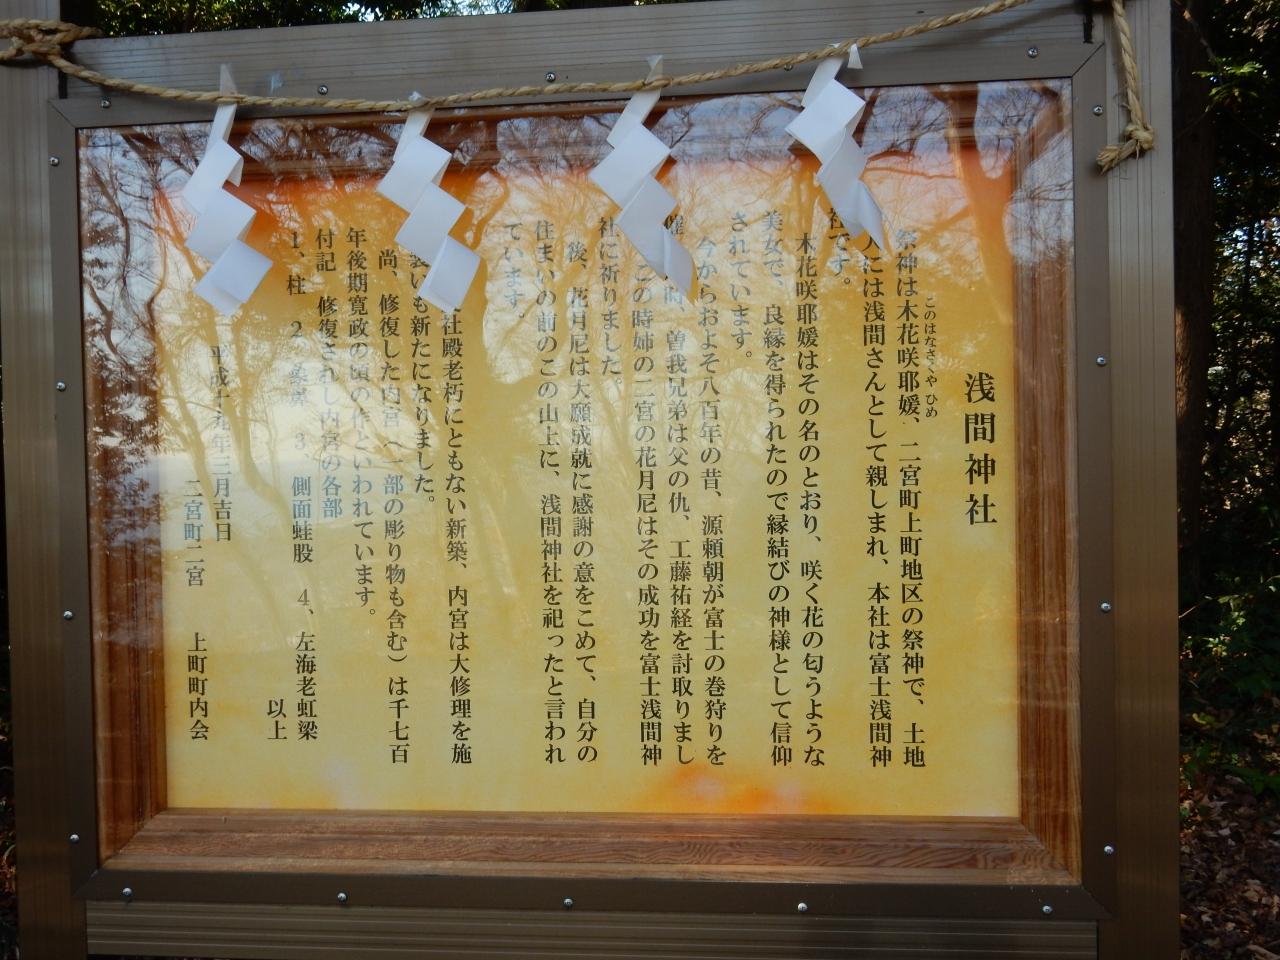 浅間神社
このはなさくや ひめ
祭神は木花咲耶媛、二宮町上町地区の祭神で、土地
には浅間さんとして親しまれ、本社は富士浅間神
社です。
木花咲耶媛はその名のとおり、咲く花の匂うような
美女で、良縁を得られたので縁結びの神様として信仰
されています。
今からおよそ八百年の昔、源頼朝が富士の巻狩りを
催時、曽我兄弟は父の仇、工藤祐経を討取りまし
この時姉の二宮の花月尼はその成功を富士浅間神
社に祈りました。
後、花月尼は大願成就に感謝の意をこめて、自分の
住まいの前のこの山上に、浅間神社を祀ったと言われ
ています。
社殿老朽にともない新築、内宮は大修理を施
装いも新たになりました。
尚、修復した内宮（一部の彫り物も含む）は千七百
年後期寛政の頃の作といわれています。
付記 修復されし内宮の各部
1、柱 2、象鼻 3、側面蛙股 4、左海老虹梁
以上
平成十九年三月吉日
二宮町二宮 上町町内会